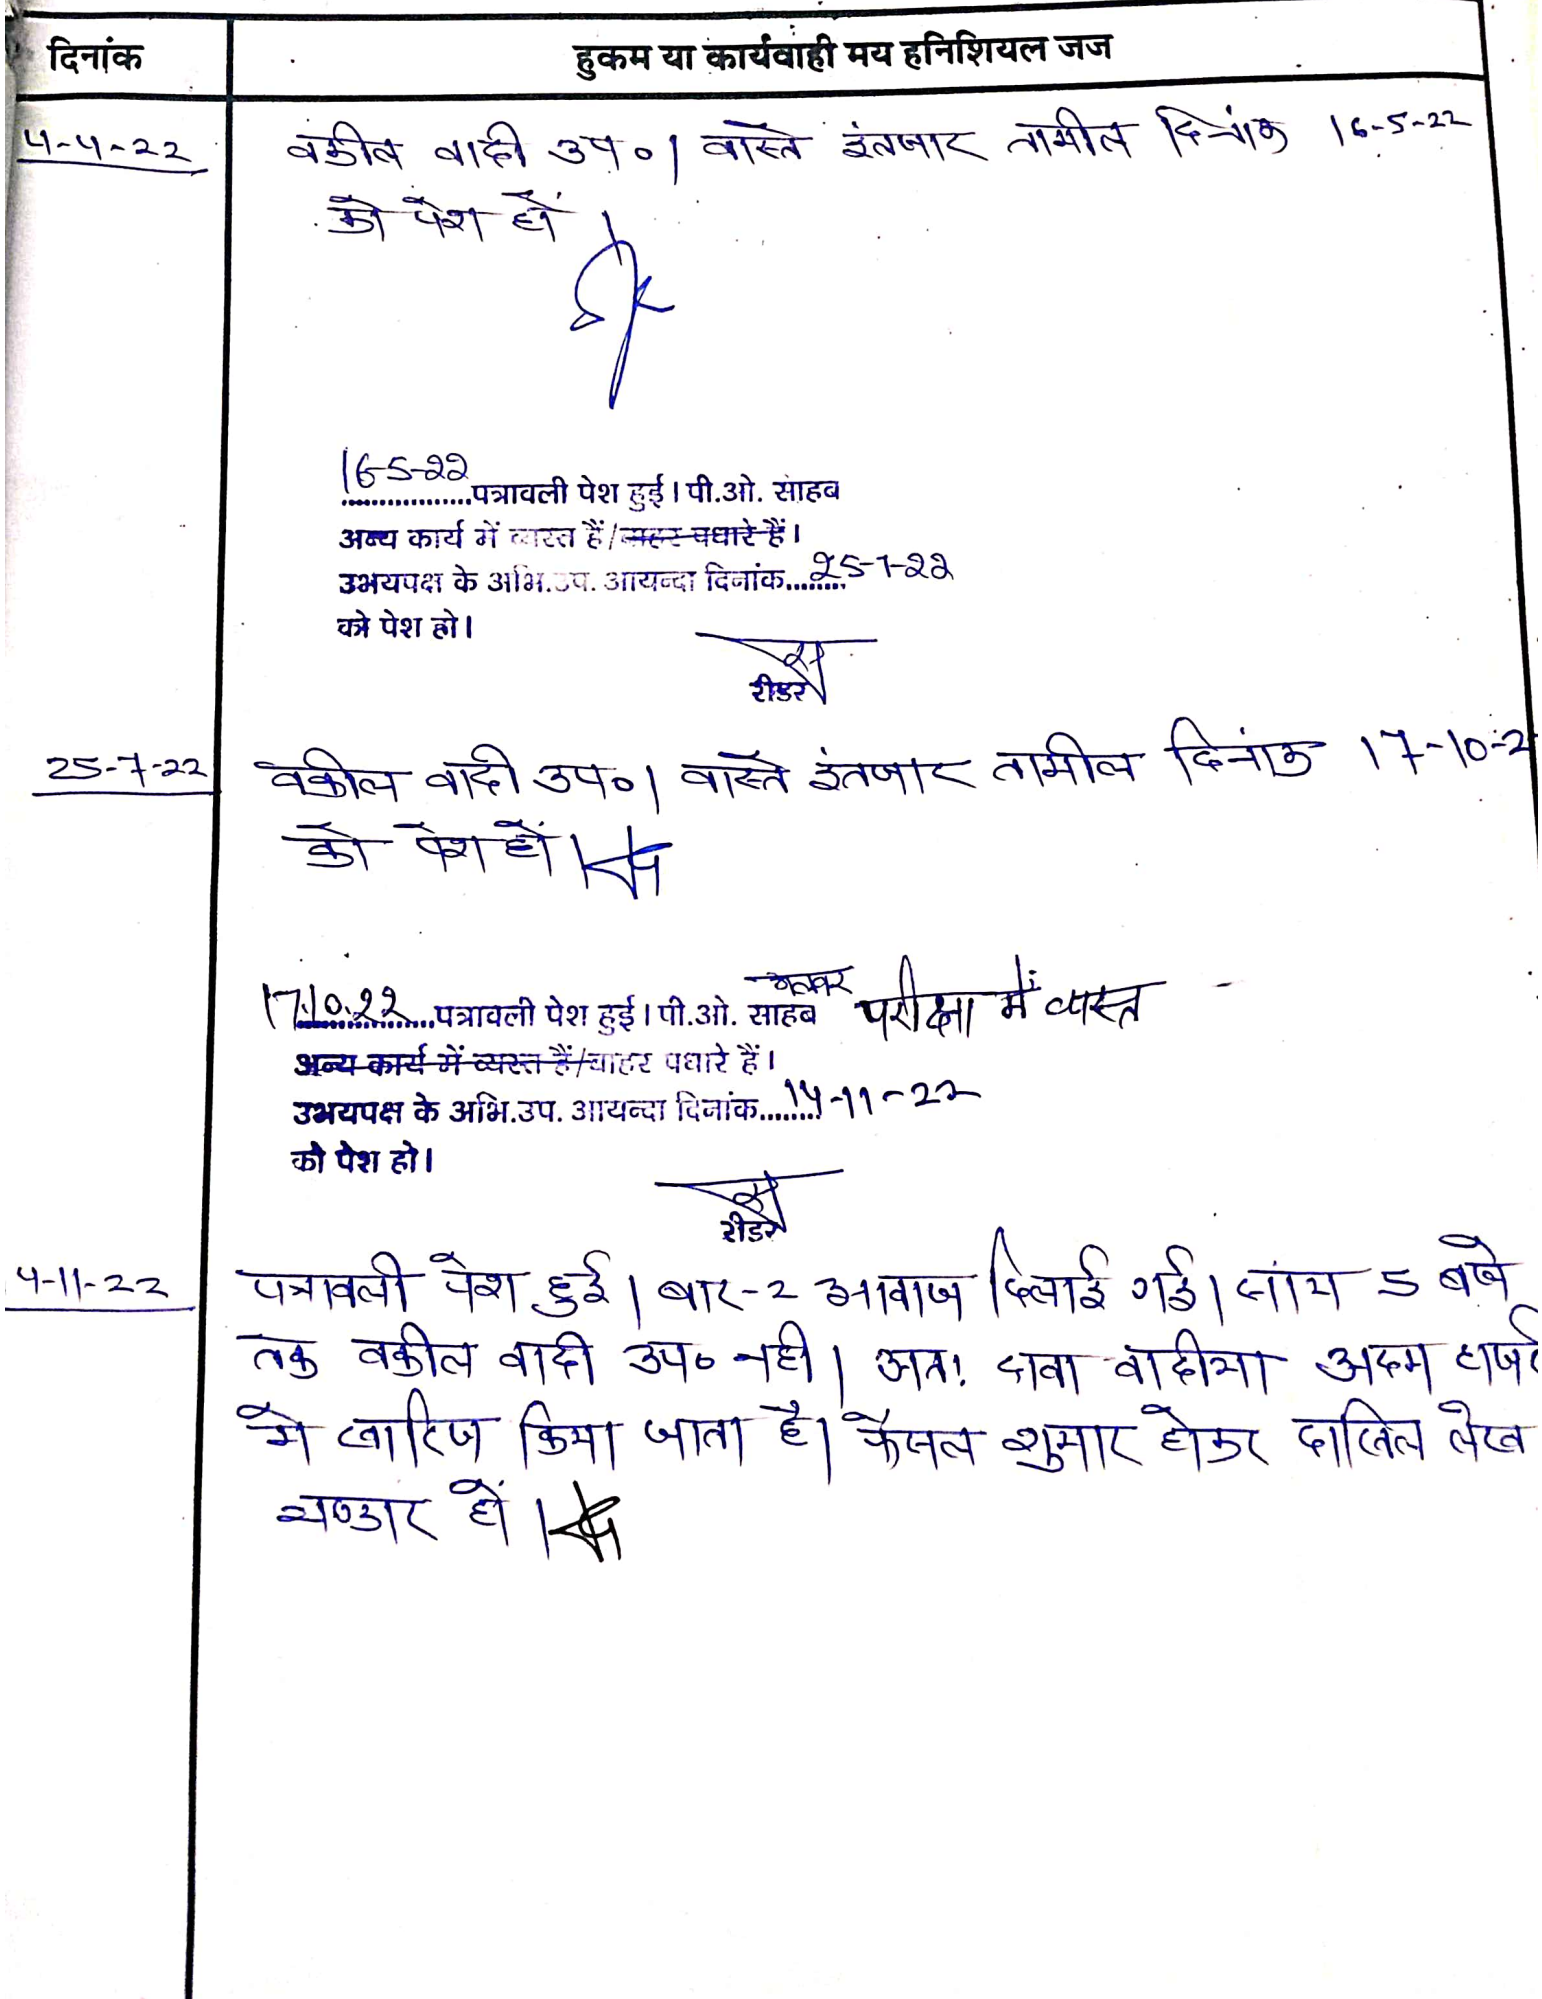 दिनांक
हुकम या कार्यवाही मय हनिशियल जज
4-4-22
वकील वादी उप०। वास्ते इंतजार तामील दिनांक 16-5-22
को पेश हों।
16-5-22
.................पत्रावली पेश हुई। पी.ओ. साहब
अन्य कार्य में व्यस्त हैं/बाहर पधारे हैं।
उभयपक्ष के अभि.उप. आयन्दा दिनांक........25-7-22
को पेश हो।
रीडर
25-7-22
वकील वादी उप०। वास्ते इंतजार तामील दिनांक 17-10-2
को पेश हों।
17.10.22 ....पत्रावली पेश हुई। पी.ओ. साहब परीक्षा में व्यस्त
अन्य कार्य में व्यस्त हैं/बाहर पधारे हैं।
उभयपक्ष के अभि.उप. आयन्दा दिनांक........14-11-22
को पेश हो।
रीडर
4-11-22
पत्रावली पेश हुई। बार-2 आवाज दिलाई गई। सांय 5 बजे
तक वकील वादी उप० नही। अतः दावा वादीया अदम हाजरी
मे खारिज किया जाता है। फैसल शुमार होकर दाखिल लेख
भण्डार हों।